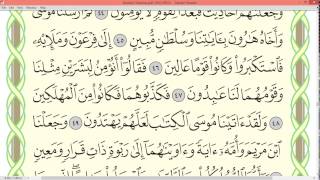 وَجَعَلْنَٰهُمْ أَحَادِيثَ فَبُعْدًا لِّقَوْمٍ لَّا يُؤْمِنُونَ ٤٤ ثُمَّ أَرْسَلْنَا مُوسَىٰ
وَأَخَاهُ هَٰرُونَ بِـَٔايَٰتِنَا وَسُلْطَٰنٍ مُّبِينٍ ٤٥ إِلَىٰ فِرْعَوْنَ وَمَلَإِيْهِۦ
فَٱسْتَكْبَرُوا۟ وَكَانُوا۟ قَوْمًا عَالِينَ ٤٦ فَقَالُوٓا۟ أَنُؤْمِنُ لِبَشَرَيْنِ مِثْلِنَا
وَقَوْمُهُمَا لَنَا عَٰبِدُونَ ٤٧ فَكَذَّبُوهُمَا فَكَانُوا۟ مِنَ ٱلْمُهْلَكِينَ
٤٨ وَلَقَدْ ءَاتَيْنَا مُوسَى ٱلْكِتَٰبَ لَعَلَّهُمْ يَهْتَدُونَ ٤٩ وَجَعَلْنَا
ٱبْنَ مَرْيَمَ وَأُمَّهُۥٓ ءَايَةً وَءَاوَيْنَٰهُمَآ إِلَىٰ رَبْوَةٍ ذَاتِ قَرَارٍ وَمَعِينٍ